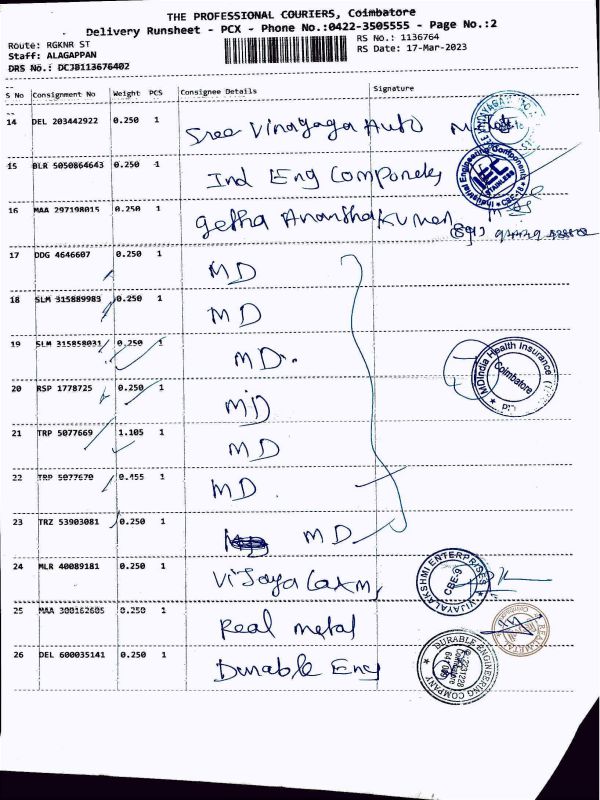 THE PROFESSIONAL COURIERS, Coimbatore
Delivery Runsheet - PCX - Phone No.:0422-3505555 - Page No.:2
Route: RGKNR ST
RS No.: 1136764
Staff: ALAGAPPAN
RS Date: 17-Mar-2023
DRS No.: DCJB113676402
S No Consignment No Weight PCS Consignee Details Signature
14 DEL 203442922 0.250 1 Sree Vinayaga Auto
15 BLR 5050864643 0.250 1 Ind Eng Componets
Industrial Engineering Components
IEC
STAINLESS
CBE-18
16 MAA 297198015 0.250 1 getha Ananthakumar
17 DDG 4646607 0.250 1 MD
18 SLM 315889983 0.250 1 MD
19 SLM 315858031 0.250 1 MD.
MDIndia Health Insurance
Coimbatore
20 RSP 1778725 0.250 1 MD
21 TRP 5077669 1.105 1 MD
22 TRP 5077670 0.455 1 MD
23 TRZ 53903081 0.250 1 MD
24 MLR 40089181 0.250 1 Vijaya Laxmi
VIJAYALAKSHMI ENTERPRISES
CBE-9
25 MAA 300162605 0.250 1 Real metal
REAL METAL
26 DEL 600035141 0.250 1 Durable Eng
DURABLE ENGINEERING COMPANY